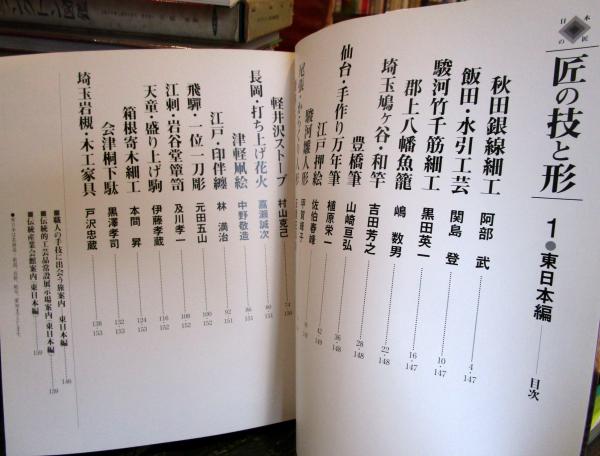 日本の匠
匠の技と形
1●東日本編──目次
秋田銀線細工 阿部 武 4・147
飯田・水引工芸 関島 登 10・147
駿河竹千筋細工 黒田英一 16・147
郡上八幡魚籠 嶋 数男 22・148
埼玉鳩ヶ谷・和竿 吉田芳之 28・148
豊橋筆 山崎亘弘 36・148
仙台・手作り万年筆 植原栄一 42・149
江戸押絵 佐伯春峰
駿河雛人形 甲賀峰子
軽井沢ストーブ 村山克己 74・150
長岡・打ち上げ花火 嘉瀬誠次 80・151
津軽凧絵 中野敬造 86・151
江戸・印伴纏 林 満治 92・151
飛驒・一位一刀彫 元田五山 100・152
江刺・岩谷堂箪笥 及川孝一 108・152
天童・盛り上げ駒 伊藤孝蔵 116・152
箱根寄木細工 本間 昇 124・153
会津桐下駄 黒澤孝司 132・153
埼玉岩槻・木工家具 戸沢忠蔵 138・153
■職人の手技に出会う旅案内 東日本編 146
■伝統的工芸品常設展示場案内・東日本編 159
■伝統産業会館案内・東日本編 159